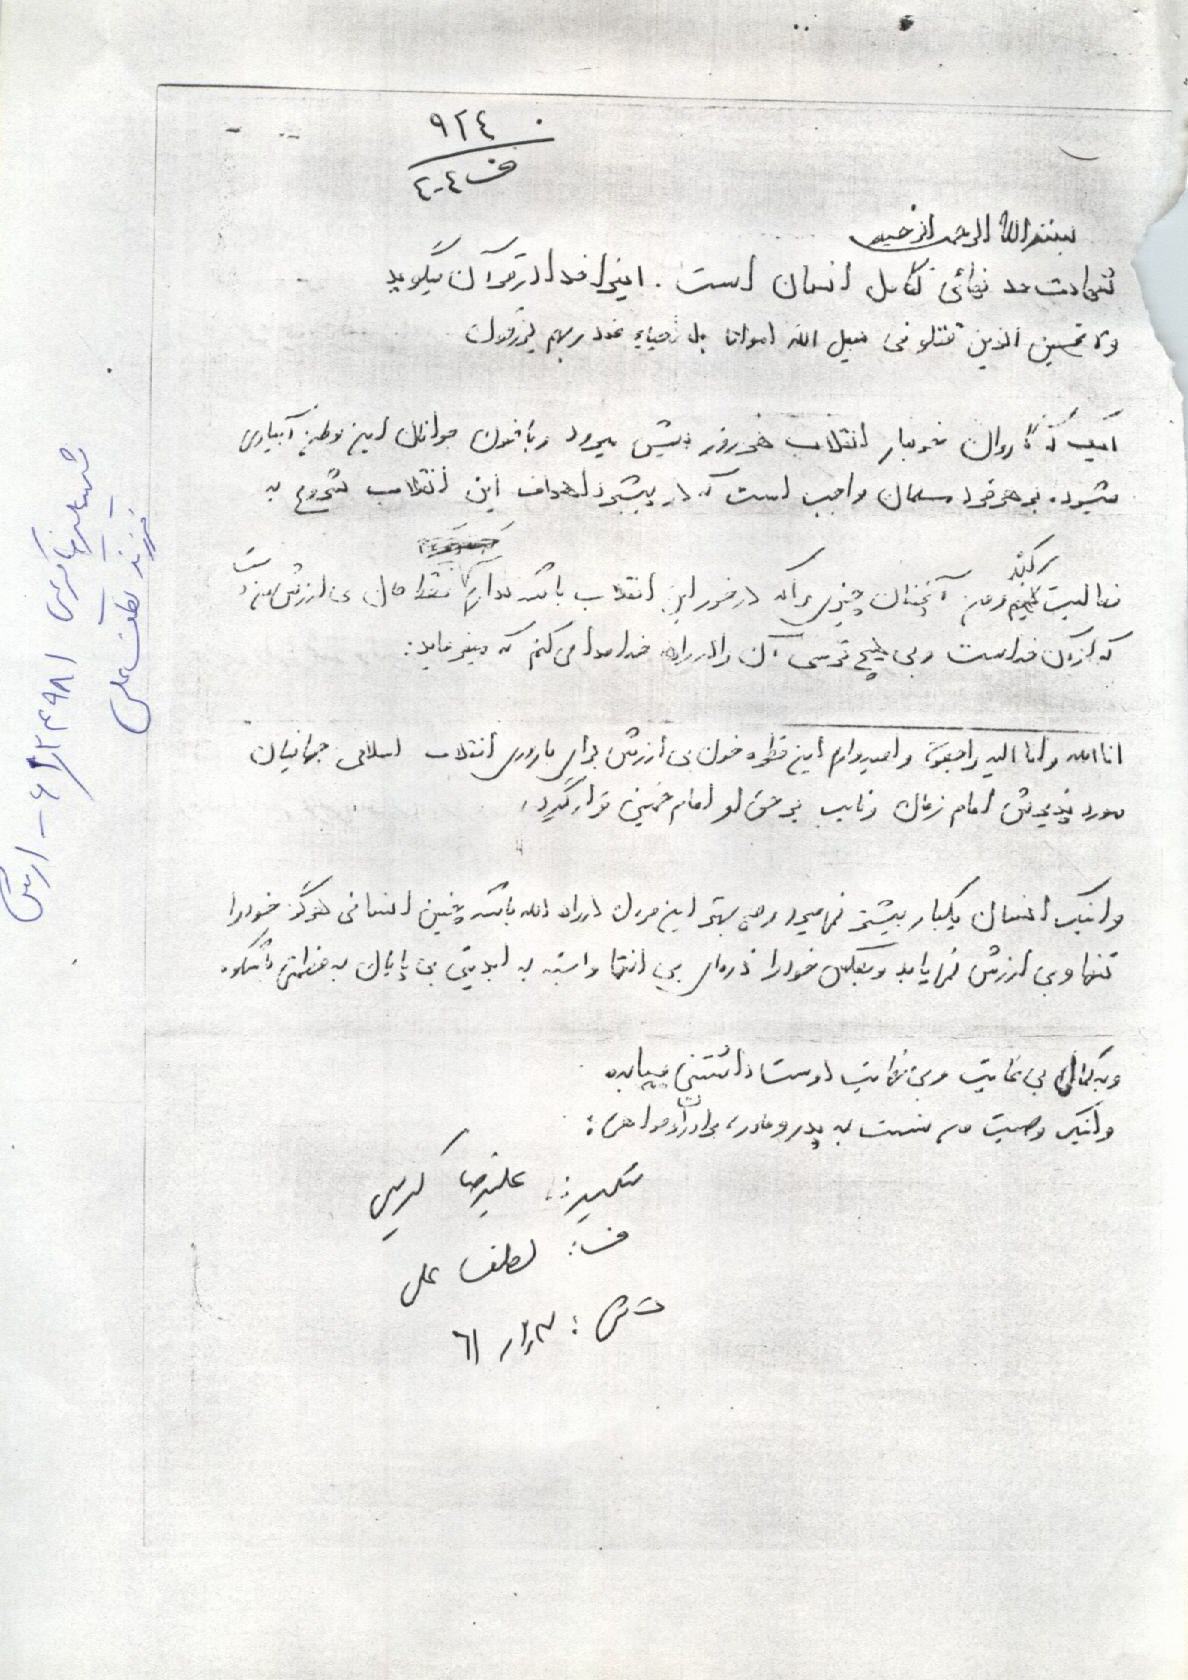 ۹۲٤
ف ٤-٤
بسم الله الرحمن الرحیم
شهادت حد نهائی تکامل انسان است. اینرا خدا در قرآن میگوید
ولا تحسبن الذین قتلو فی سبیل الله امواتا بل احیاء عند ربهم یرزقون
اینک که کاروان خونبار انقلاب هر روز پیش میرود و با خون جوانان این وطن آبیاری
میشود. بر هر فرد مسلمان واجب است که در پیشبرد اهداف این انقلاب شروع به
فعالیت کند ومن آنچنان چیزی را که در خور این انقلاب باشد ندارم فقط جان بی ارزش
که از آن خداست و بی هیچ ترسی آن را در راه خدا میدهم که میفرماید:
انا لله و انا الیه راجعون و امیدوارم این قطره خون بی ارزش برای باروری انقلاب اسلامی جهانیان
مورد پذیرش امام زمان و نایب بر حق او امام خمینی قرار گیرد.
و اینک انسان یکبار بیشتر نمیمیرد وچه بهتر این مردن در راه الله باشد چنین انسانی هرگز خود را
تنها و بی ارزش نمی یابد و بعکس خود را ذره‌ای بی انتها وابسته به ابدیتی بی پایان به عظمتی باشکوه
و به کمال بی غایت و بی نهایت دوست داشتنی مییابد
و اینک وصیت من نسبت به پدر و مادر، برادران و خواهران:
شهید: علیرضا کرمی
ف: لطف علی
ت ش: ۶۱
شهید علیرضا کرمی ۶/۲۴۹۸۱
فرزند لطف علی